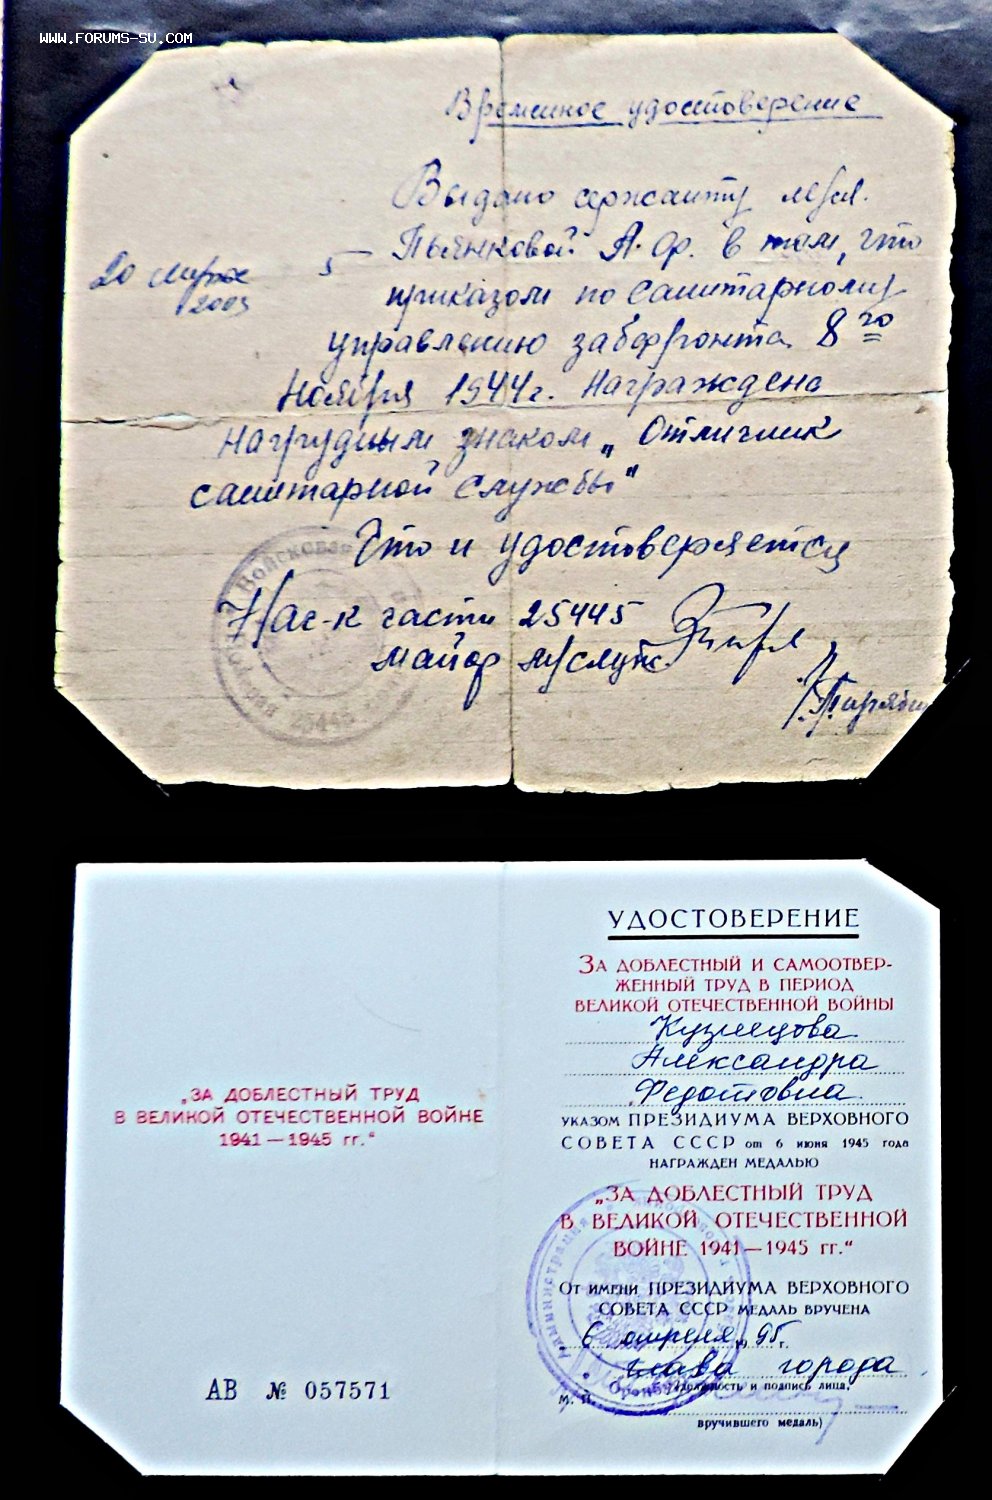 WWW.FORUMS-SU.COM
Временное удостоверение
Выдано сержанту
Пьянковой А. Ф. в том, что
приказом по санитарному
управлению забфронта 8го
Ноября 1944 г. Награждена
нагрудным знаком „Отличник
санитарной службы"
Что и удостоверяется
Нач-к части 25445
майор м/служ.
20
2003
Войсковая
25445
УДОСТОВЕРЕНИЕ
ЗА ДОБЛЕСТНЫЙ И САМООТВЕР-
ЖЕННЫЙ ТРУД В ПЕРИОД
ВЕЛИКОЙ ОТЕЧЕСТВЕННОЙ ВОЙНЫ
Кузнецова
Александра
Федотовна
УКАЗОМ ПРЕЗИДИУМА ВЕРХОВНОГО
СОВЕТА СССР от 6 июня 1945 года
НАГРАЖДЕН МЕДАЛЬЮ
„ЗА ДОБЛЕСТНЫЙ ТРУД
В ВЕЛИКОЙ ОТЕЧЕСТВЕННОЙ
ВОЙНЕ 1941—1945 гг.“
ОТ ИМЕНИ ПРЕЗИДИУМА ВЕРХОВНОГО
СОВЕТА СССР МЕДАЛЬ ВРУЧЕНА
6 апреля 95 г.
глава города
М. П. (должность и подпись лица,
вручившего медаль)
Администрация
„ЗА ДОБЛЕСТНЫЙ ТРУД
В ВЕЛИКОЙ ОТЕЧЕСТВЕННОЙ ВОЙНЕ
1941—1945 гг.“
АВ № 057571